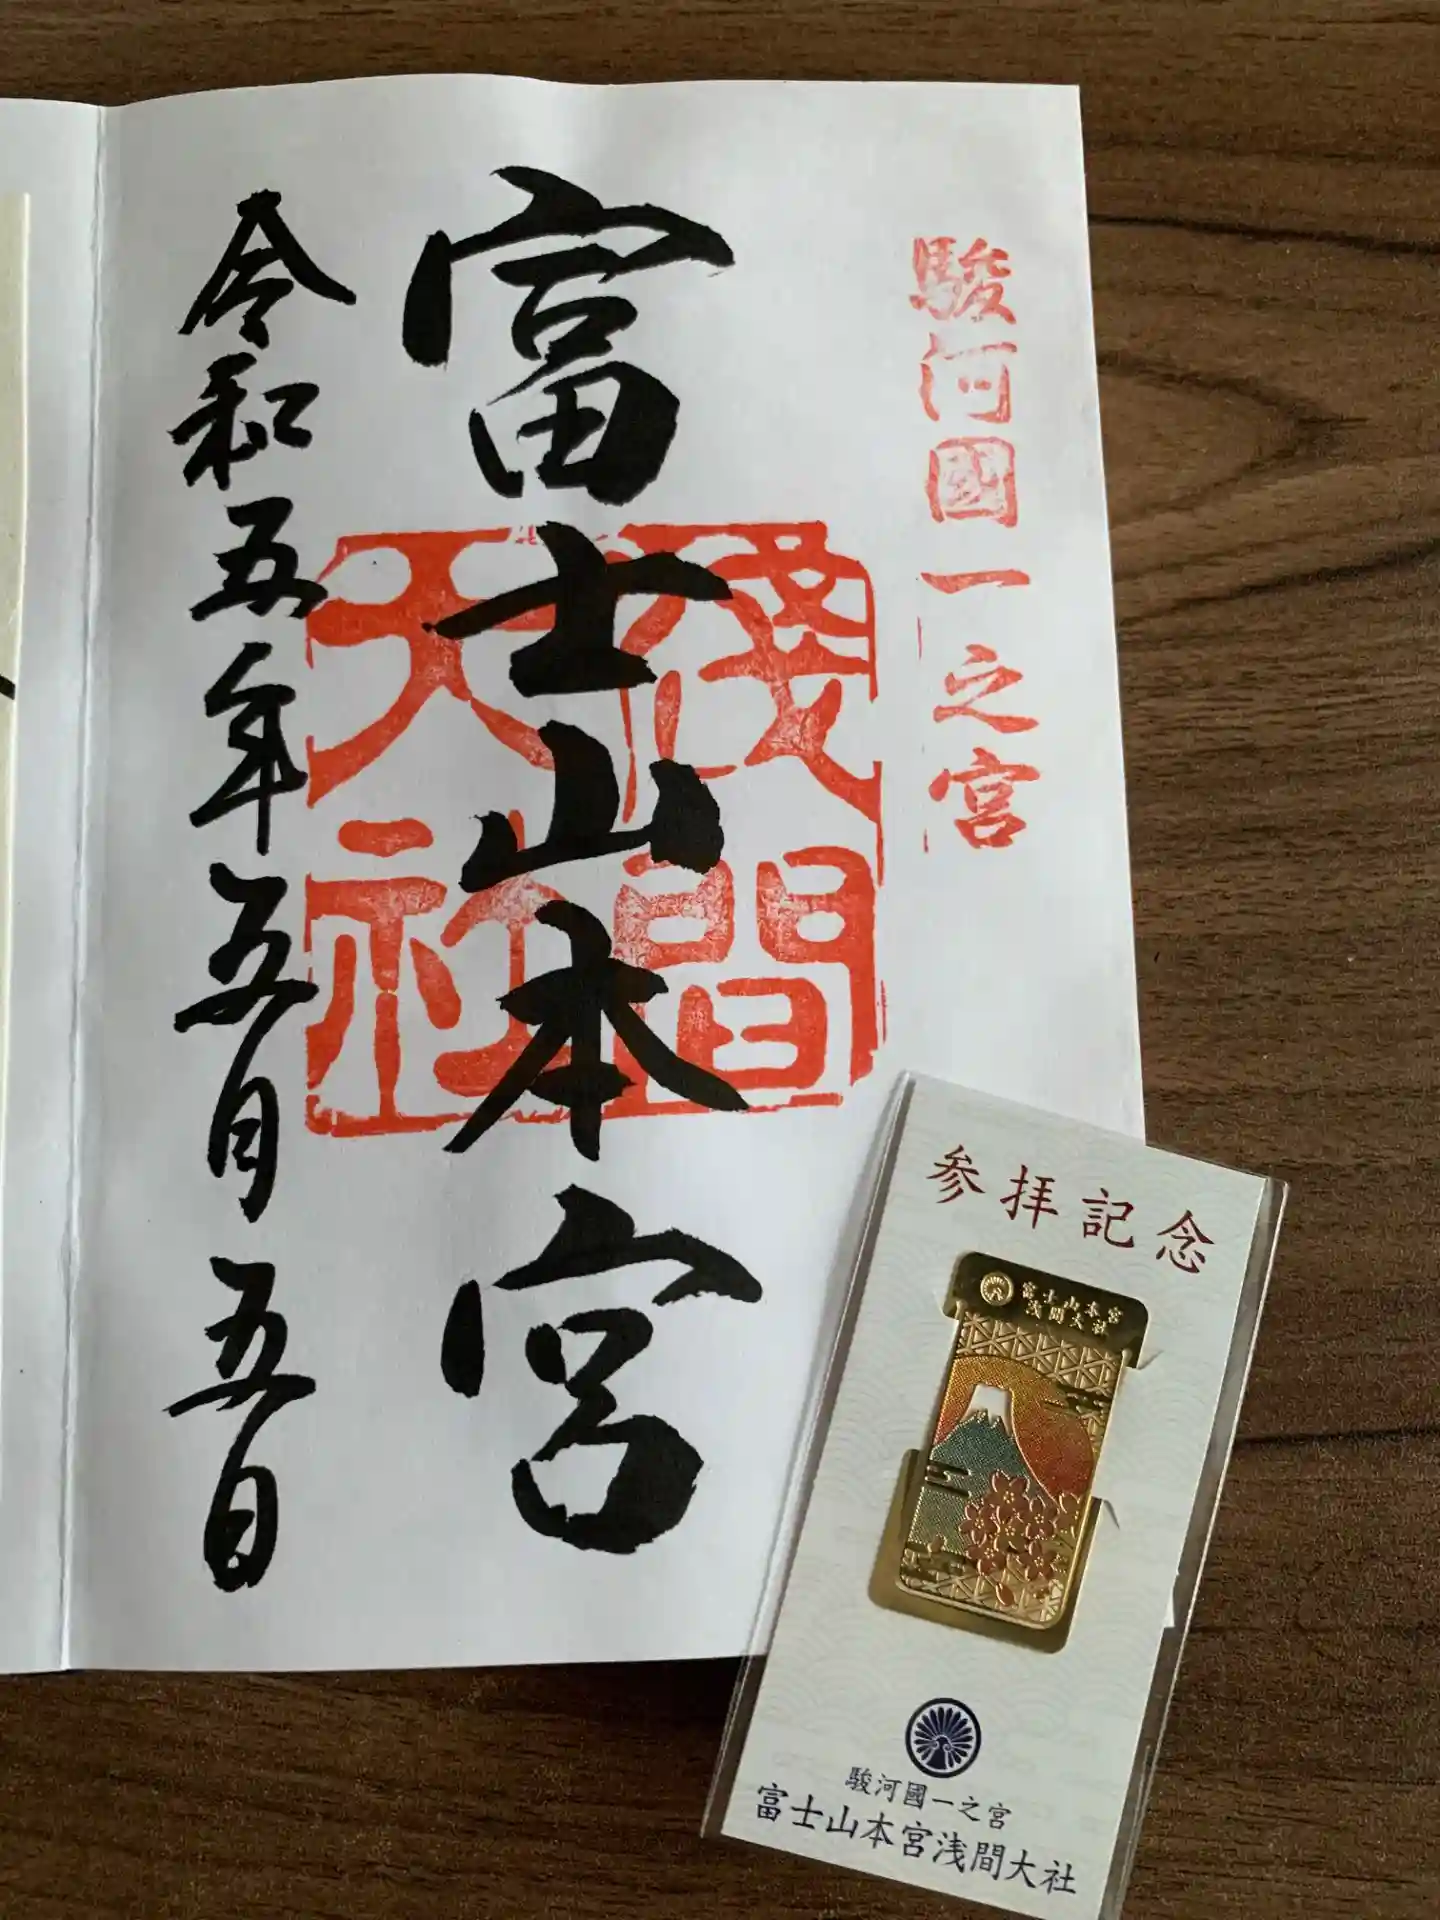 駿河國一之宮
富士山本宮
浅間大社
令和五年五月五日
参拝記念
富士山本宮
浅間大社
駿河國一之宮
富士山本宮浅間大社